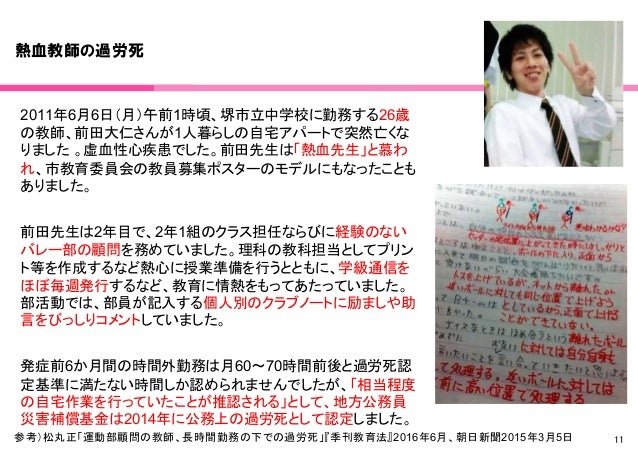 熱血教師の過労死
2011年6月6日（月）午前1時頃、堺市立中学校に勤務する26歳
の教師、前田大仁さんが1人暮らしの自宅アパートで突然亡くな
りました 。虚血性心疾患でした。前田先生は「熱血先生」と慕わ
れ、市教育委員会の教員募集ポスターのモデルにもなったことも
ありました。
前田先生は2年目で、2年1組のクラス担任ならびに経験のない
バレー部の顧問を務めていました。理科の教科担当としてプリン
ト等を作成するなど熱心に授業準備を行うとともに、学級通信を
ほぼ毎週発行するなど、教育に情熱をもってあたっていました。
部活動では、部員が記入する個人別のクラブノートに励ましや助
言をびっしりコメントしていました。
発症前6か月間の時間外勤務は月60～70時間前後と過労死認
定基準に満たない時間しか認められませんでしたが、「相当程度
の自宅作業を行っていたことが推認される」として、地方公務員
災害補償基金は2014年に公務上の過労死として認定しました。
トスを上げているが、ネットから離れた
近いボールに対しても同じ位置で上げよう
としているから、正面で上げる
ことができていない。
離れたボール
に対しては自分自身も
して処理する。近いボールに対しては
前に高い位置で処理する
参考）松丸正「運動部顧問の教師、長時間勤務の下での過労死」『季刊教育法』2016年6月、朝日新聞2015年3月5日
11